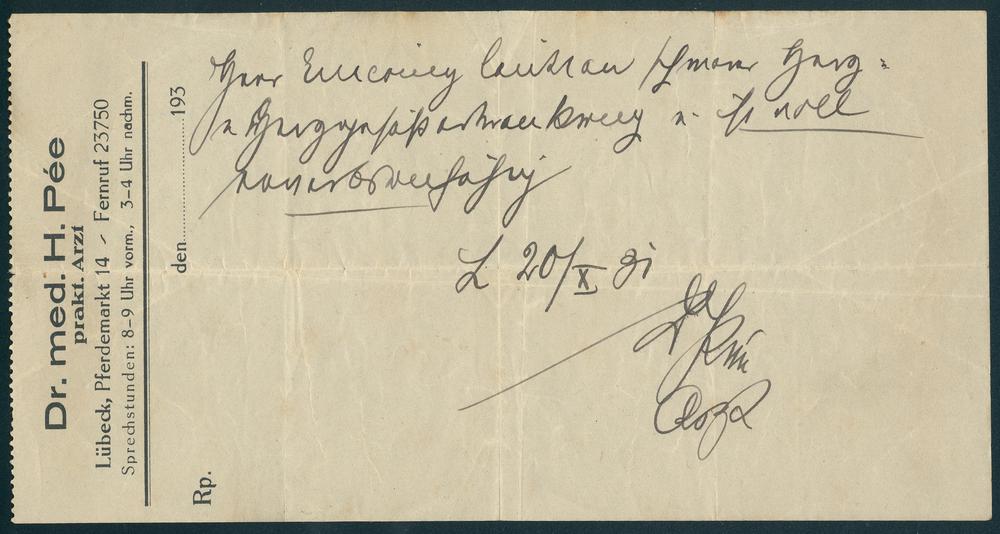 Dr. med. H. Pée
prakt. Arzt
Lübeck, Pferdemarkt 14 - Fernruf 23750
Sprechstunden: 8-9 Uhr vorm., 3-4 Uhr nachm.
den 193
Rp.
Herr schwerer Herz-
u Herzgefäßerkrankung u. ist voll
erwerbsunfähig
L 20/X 31
Dr Pée
Arzt